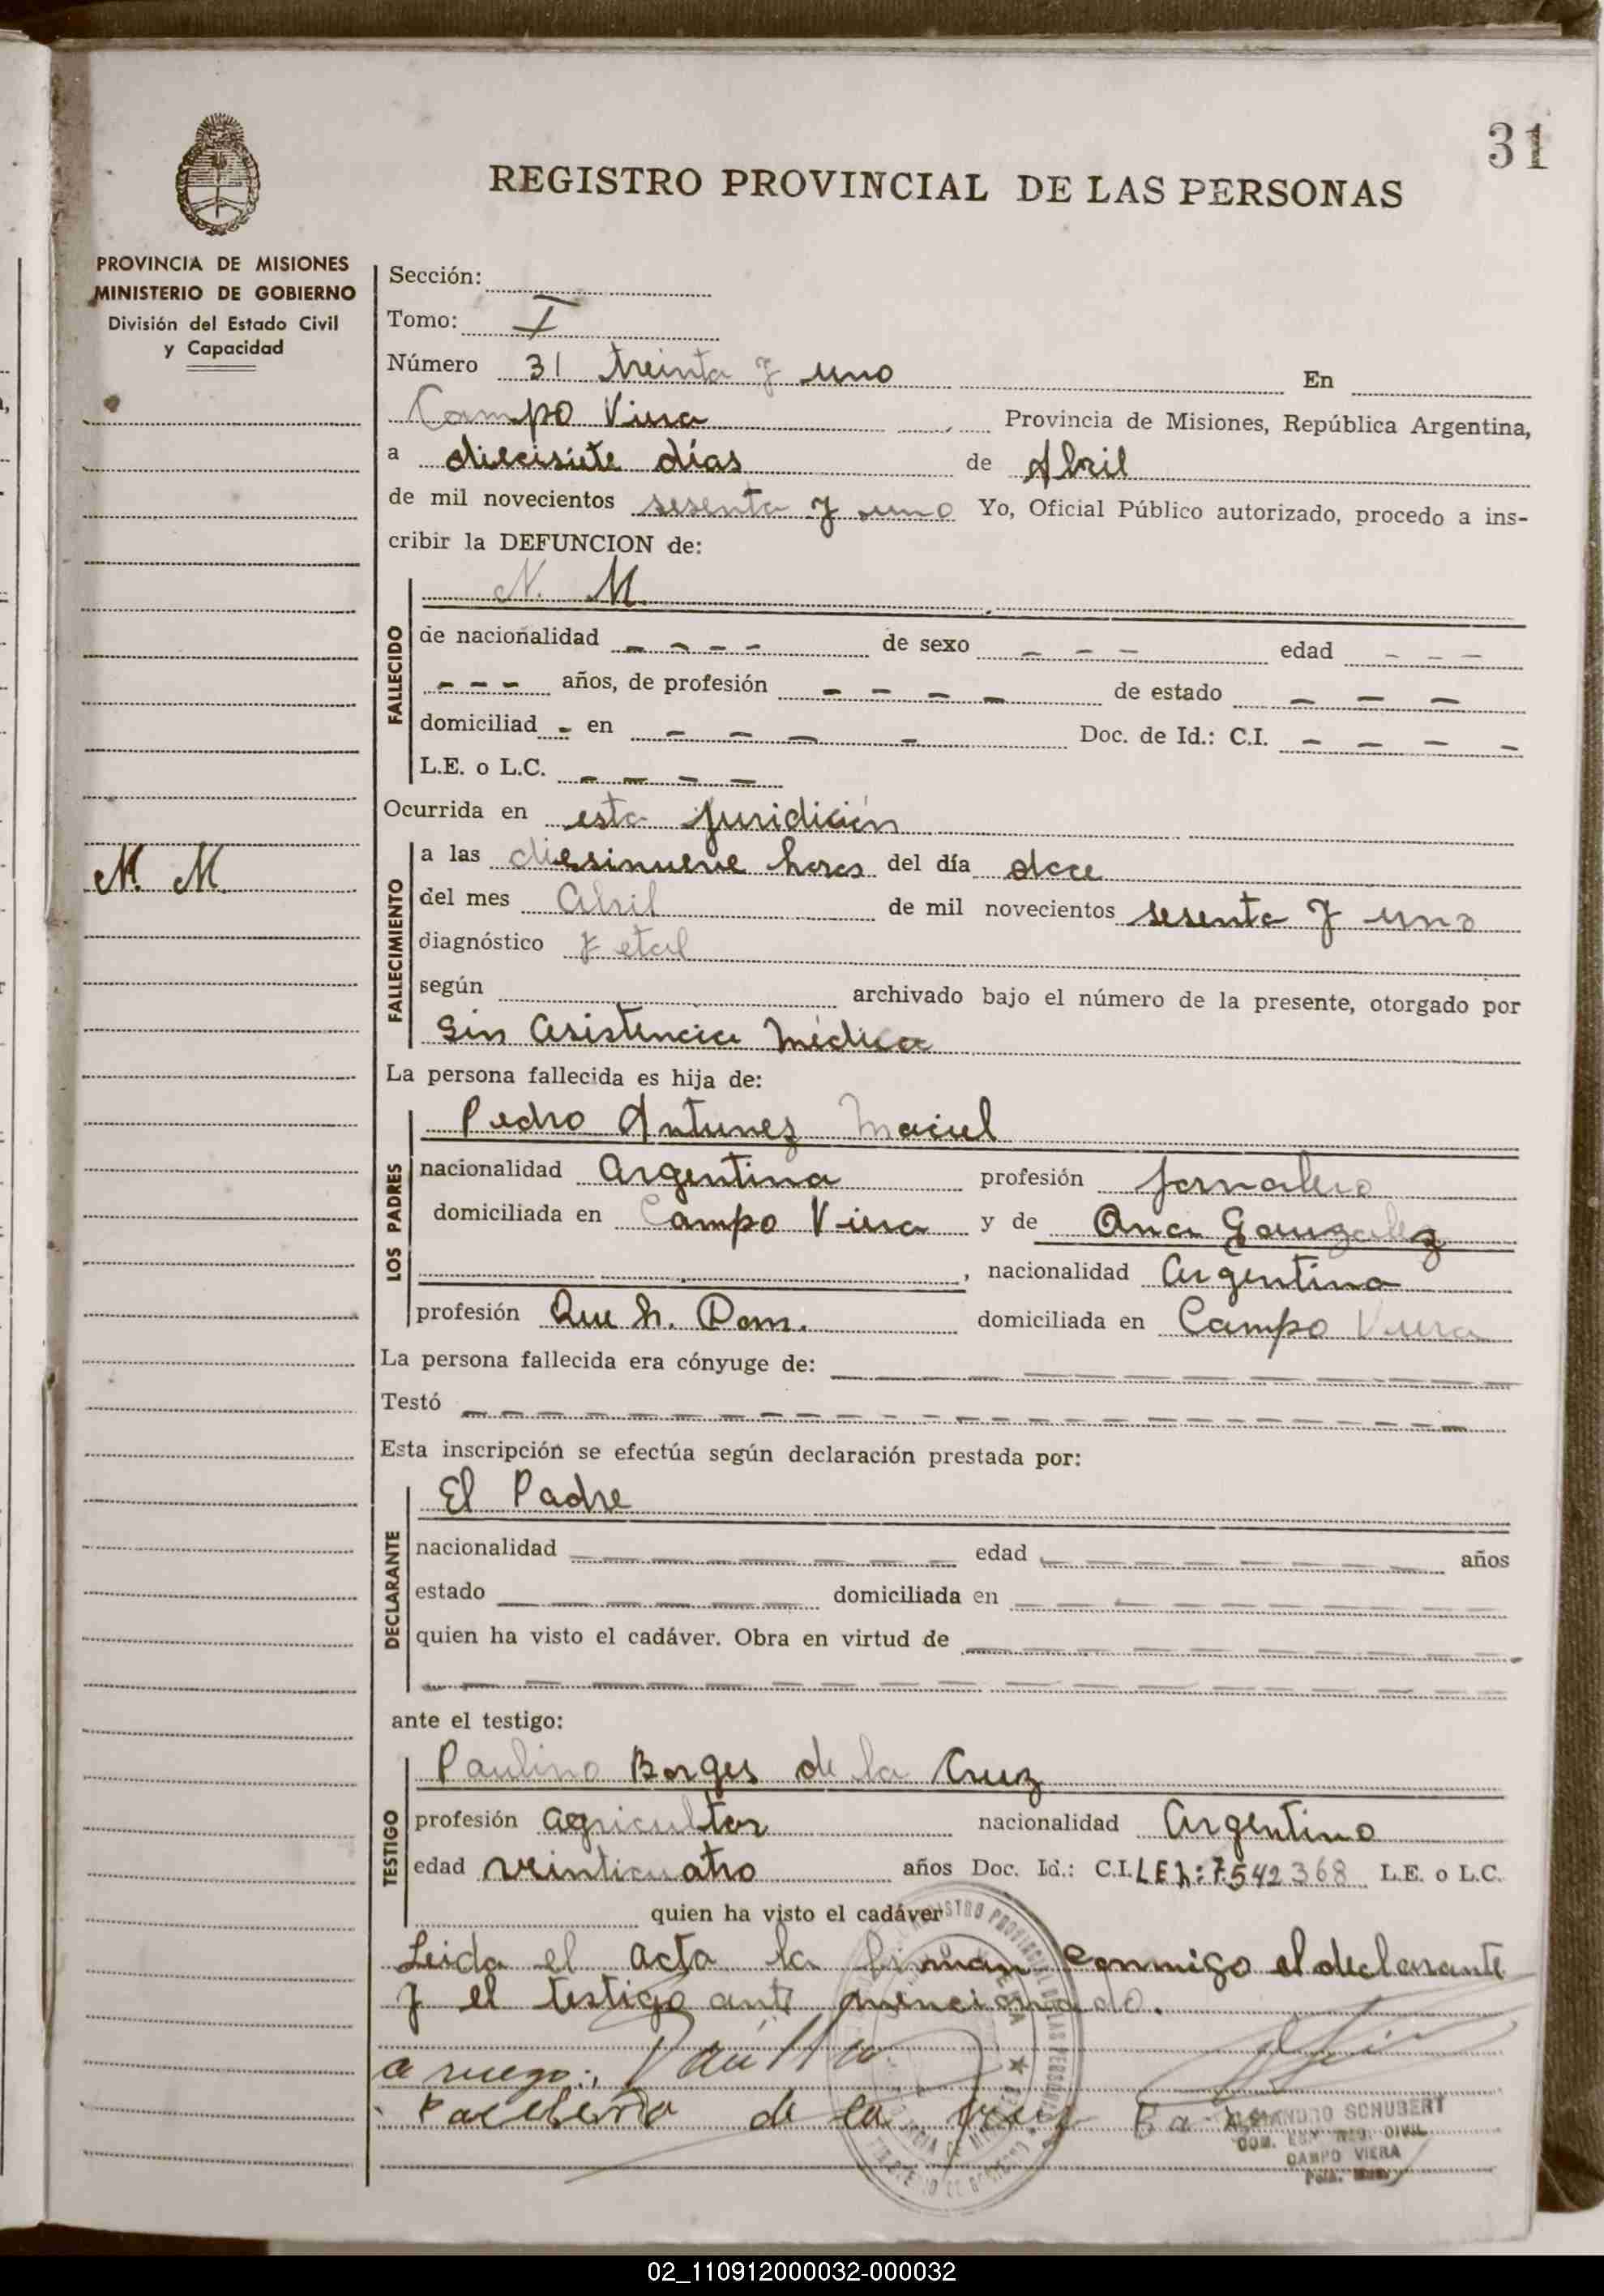 31
REGISTRO PROVINCIAL DE LAS PERSONAS
PROVINCIA DE MISIONES
MINISTERIO DE GOBIERNO
División del Estado Civil
y Capacidad
Sección:
Tomo: I
Número 31 treinta y uno En
Campo Viera Provincia de Misiones, República Argentina,
a diecisiete días de Abril
de mil novecientos sesenta y uno Yo, Oficial Público autorizado, procedo a ins-
cribir la DEFUNCION de:
N. M.
FALLECIDO
de nacionalidad - - - - de sexo - - - edad - - -
- - - años, de profesión - - - - de estado - - -
domiciliad - en - - - - Doc. de Id.: C.I. - - - -
L.E. o L.C. - - - -
Ocurrida en esta juridición
N. M.
FALLECIMIENTO
a las diesinueve horas del día doce
del mes Abril de mil novecientos sesenta y uno
diagnóstico fetal
según archivado bajo el número de la presente, otorgado por
Sin Asistencia Médica
La persona fallecida es hija de:
LOS PADRES
Pedro Antunez Maciel
nacionalidad Argentina profesión Jornalero
domiciliada en Campo Viera y de Ana Gonzalez
, nacionalidad Argentina
profesión Que h. Dom. domiciliada en Campo Viera
La persona fallecida era cónyuge de:
Testó
Esta inscripción se efectúa según declaración prestada por:
DECLARANTE
El Padre
nacionalidad edad años
estado domiciliada en
quien ha visto el cadáver. Obra en virtud de
ante el testigo:
TESTIGO
Paulino Borges de la Cruz
profesión agricultor nacionalidad Argentino
edad veinticuatro años Doc. Id.: C.I. L E n: 7.542368 L.E. o L.C.
quien ha visto el cadáver
Leida el acta la firman conmigo el declarante
y el testigo ante mencionado.
a ruego:
de la
SCHUBERT
CIVIL
CAMPO VIERA
02_110912000032-000032